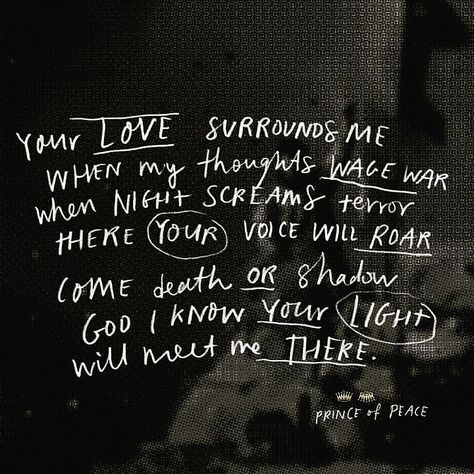 your LOVE SURROUNDS ME
WHEN my thoughts WAGE WAR
when NIGHT SCREAMS terror
THERE YOUR VOICE WILL ROAR
COME death OR shadow
GOD I KNOW YOUR LIGHT
will meet me THERE.
PRINCE of PEACE